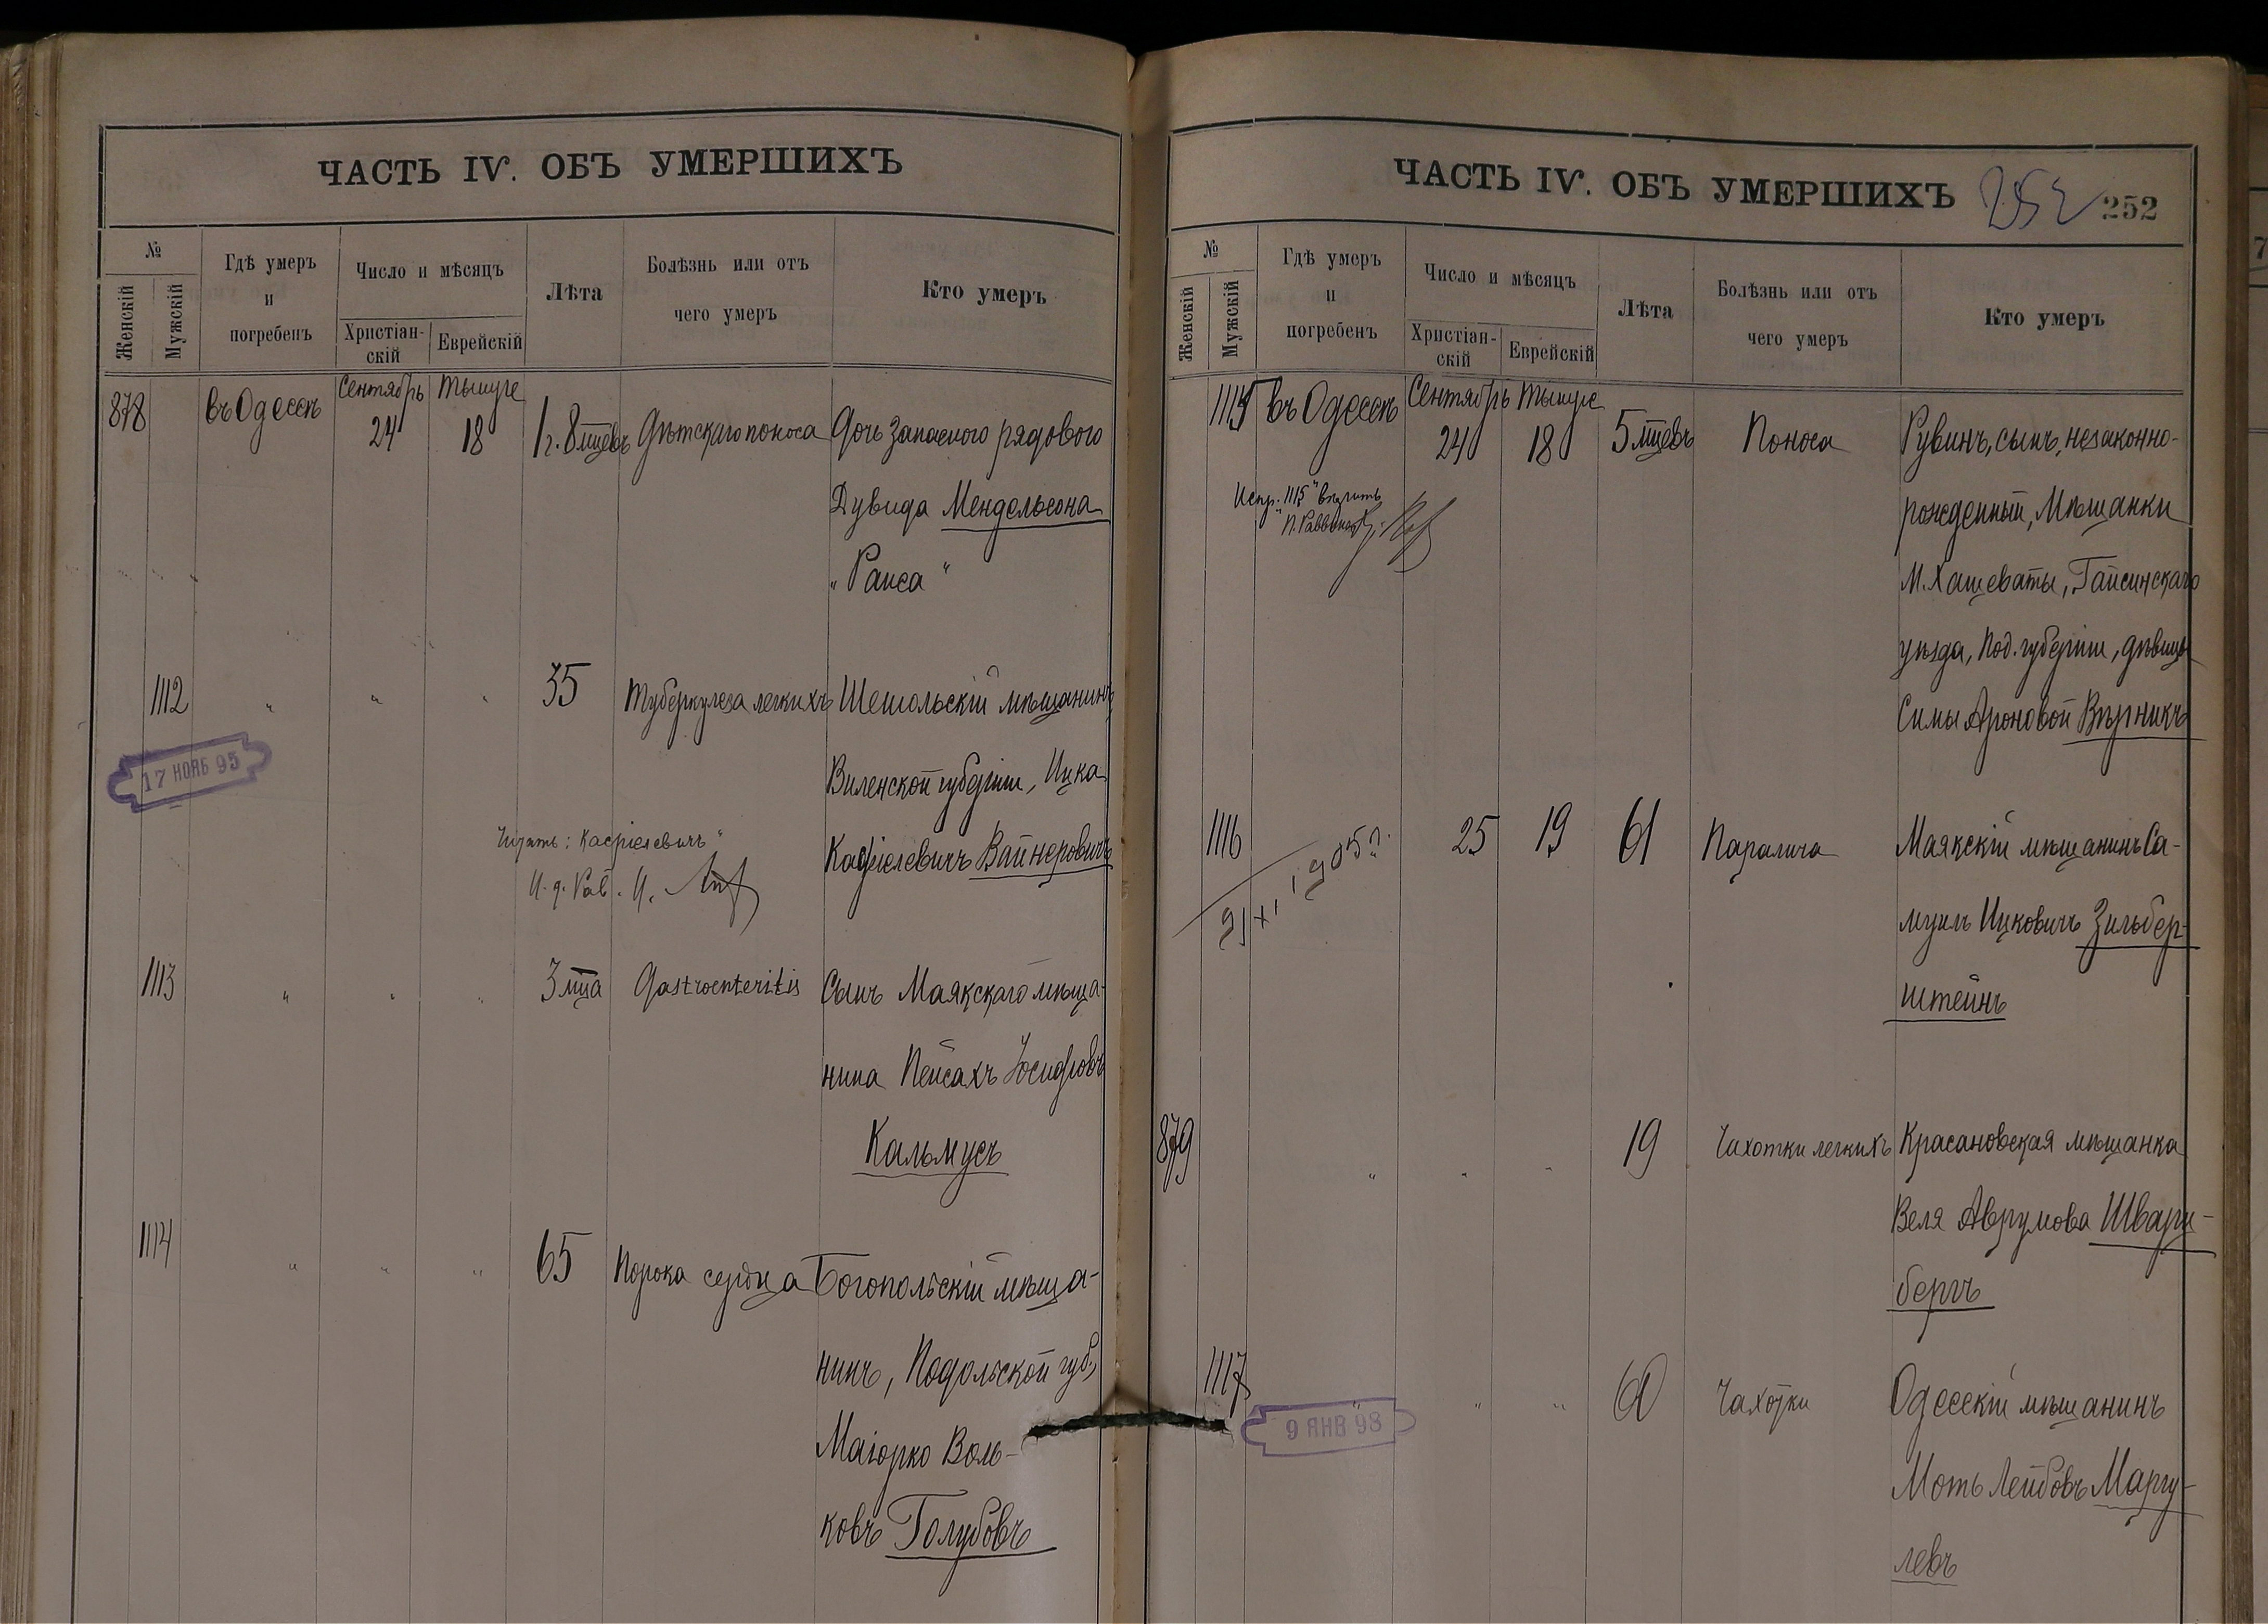 ЧАСТЬ IV. ОБЪ УМЕРШИХЪ
№
Женскій
Мужскій
Гдѣ умеръ
и
погребенъ
Число и мѣсяцъ
Христіан-
скій
Еврейскій
Лѣта
Болѣзнь или отъ
чего умеръ
Кто умеръ
878 въ Одессѣ Сентябрь 24 Тышуре 18 1 г. 8 мцевъ Дѣтскаго поноса Дочь запасного рядового
Дувида Мендельсона
„Раиса“
1112 " " " 35 Туберкулеза легкихъ мѣщанинъ
17 НОЯБ 95
Виленской губерніи, Ицка
Читать: Касріелевичъ"
Касріелевичъ Вайнеровичъ
И. д. Рав. И.
1113 " " " 3 мца Gastroenteritis Сынъ Маякскаго мѣща-
нина Пейсахъ Іосифовъ
Кальмусъ
1114 " " " 65 Порока сердца Богопольскій мѣща-
нинъ, Подольской губ,
Маіорко Воль-
ковъ Голубовъ
ЧАСТЬ IV. ОБЪ УМЕРШИХЪ 252 252
№
Женскій
Мужскій
Гдѣ умеръ
и
погребенъ
Число и мѣсяцъ
Христіан-
скій
Еврейскій
Лѣта
Болѣзнь или отъ
чего умеръ
Кто умеръ
1115 въ Одессѣ Сентябрь 24 Тышуре 18 5 мцевъ Поноса Рувинъ, сынъ, незаконно-
Испр. „1115“ вѣрить
рожденный, Мѣщанки
П. Раввина
М. Хащеваты, Гайсинскаго
уѣзда, Под. губерніи, дѣвицы
Симы Ароновой Вѣрникъ
1116 25 19 61 Паралича Маякскій мѣщанинъ Са-
21 XI 1905 г.
муилъ Ицковичъ Зильбер-
штейнъ
879 " " " 19 Чахотки легкихъ Красановская мѣщанка
Веля Аврумова Шварц-
бергъ
1117 " " " 60 Чахотки Одесскій мѣщанинъ
9 ЯНВ 98
Моть Лейбовъ Маргу-
левъ